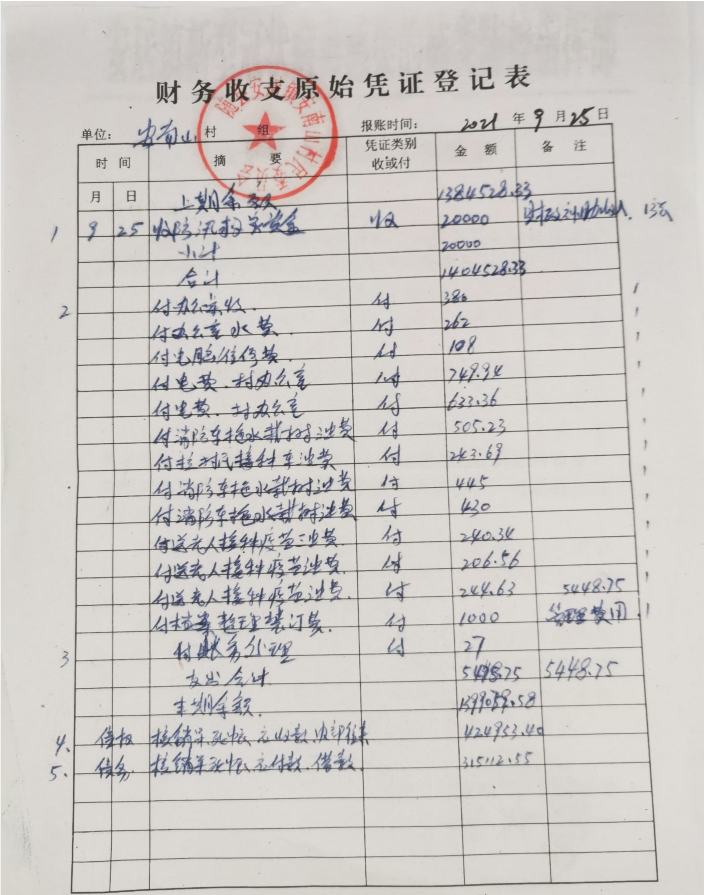 财务收支原始凭证登记表
单位： 安南山 村 组 报账时间： 2021 年 9 月 25 日
时 间 摘 要 凭证类别 收或付 金 额 备 注
月 日 上期余额 1384528.33
1 9 25 收防汛 资金 收 20000
小计 20000
合计 1404528.33
2 付办公 付 386
付办公室水费. 付 262
付电脑 费. 付 108
付电费.村办公室 付 749.94
付电费.村办公室 付 633.36
付消防车拖水栽树油费 付 505.23
付拉村民接种车油费 付 243.69
付消防车拖水栽树油费 付 445
付消防车拖水栽树油费 付 430
付送老人接种疫苗 油费 付 240.34
付送老人接种疫苗油费 付 206.56
付送老人接种疫苗油费. 付 244.63 5448.75
付档案整理装订费. 付 1000 管理费用.
3 付账务处理 付 27
支出合计 5448.75 5448.75
本期余额. 1399079.58
4. 债权 核销呆死账 应收款 内部往来 424953.40
5. 债务 核销呆死账 应付款.借款 315112.55